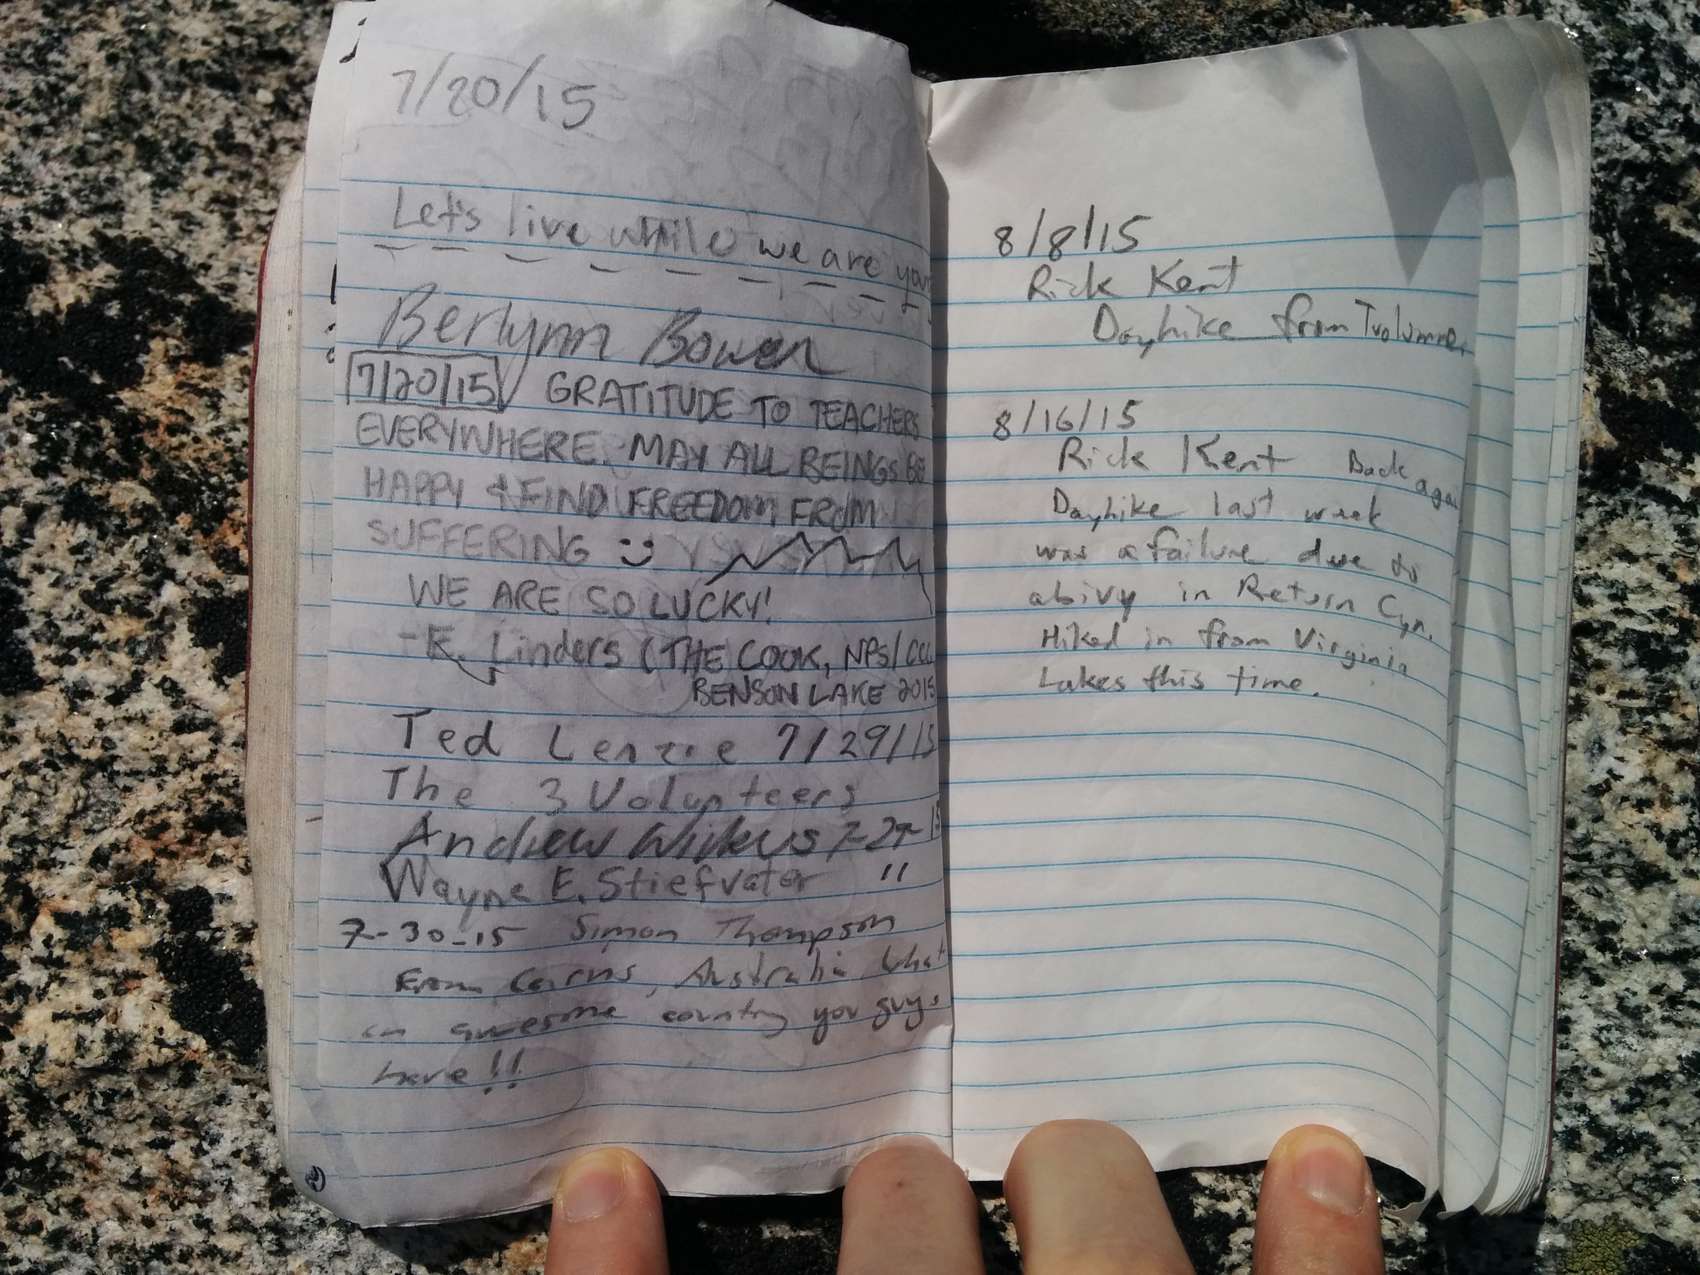 7/20/15
Let's live while we are
Berlynn Bowen
7/20/15 GRATITUDE TO TEACHERS
EVERYWHERE. MAY ALL BEINGS BE
HAPPY & FIND FREEDOM FROM
SUFFERING :)
WE ARE SO LUCKY!
-E. Linders (THE COOK, NPS/CCC
BENSON LAKE 2015
Ted Lenzie 7/29/15
The 3 Volunteers
Andrew Wickus 7-29-15
Wayne E. Stiefvater "
7-30-15 Simon Thompson
From Cairns, Australia What
an awesome country you guys
have!!
8/8/15
Rick Kent
Dayhike from Tuolumne
8/16/15
Rick Kent Back again
Dayhike last week
was a failure due to
in Return Cyn.
Hiked in from Virginia
Lakes this time.